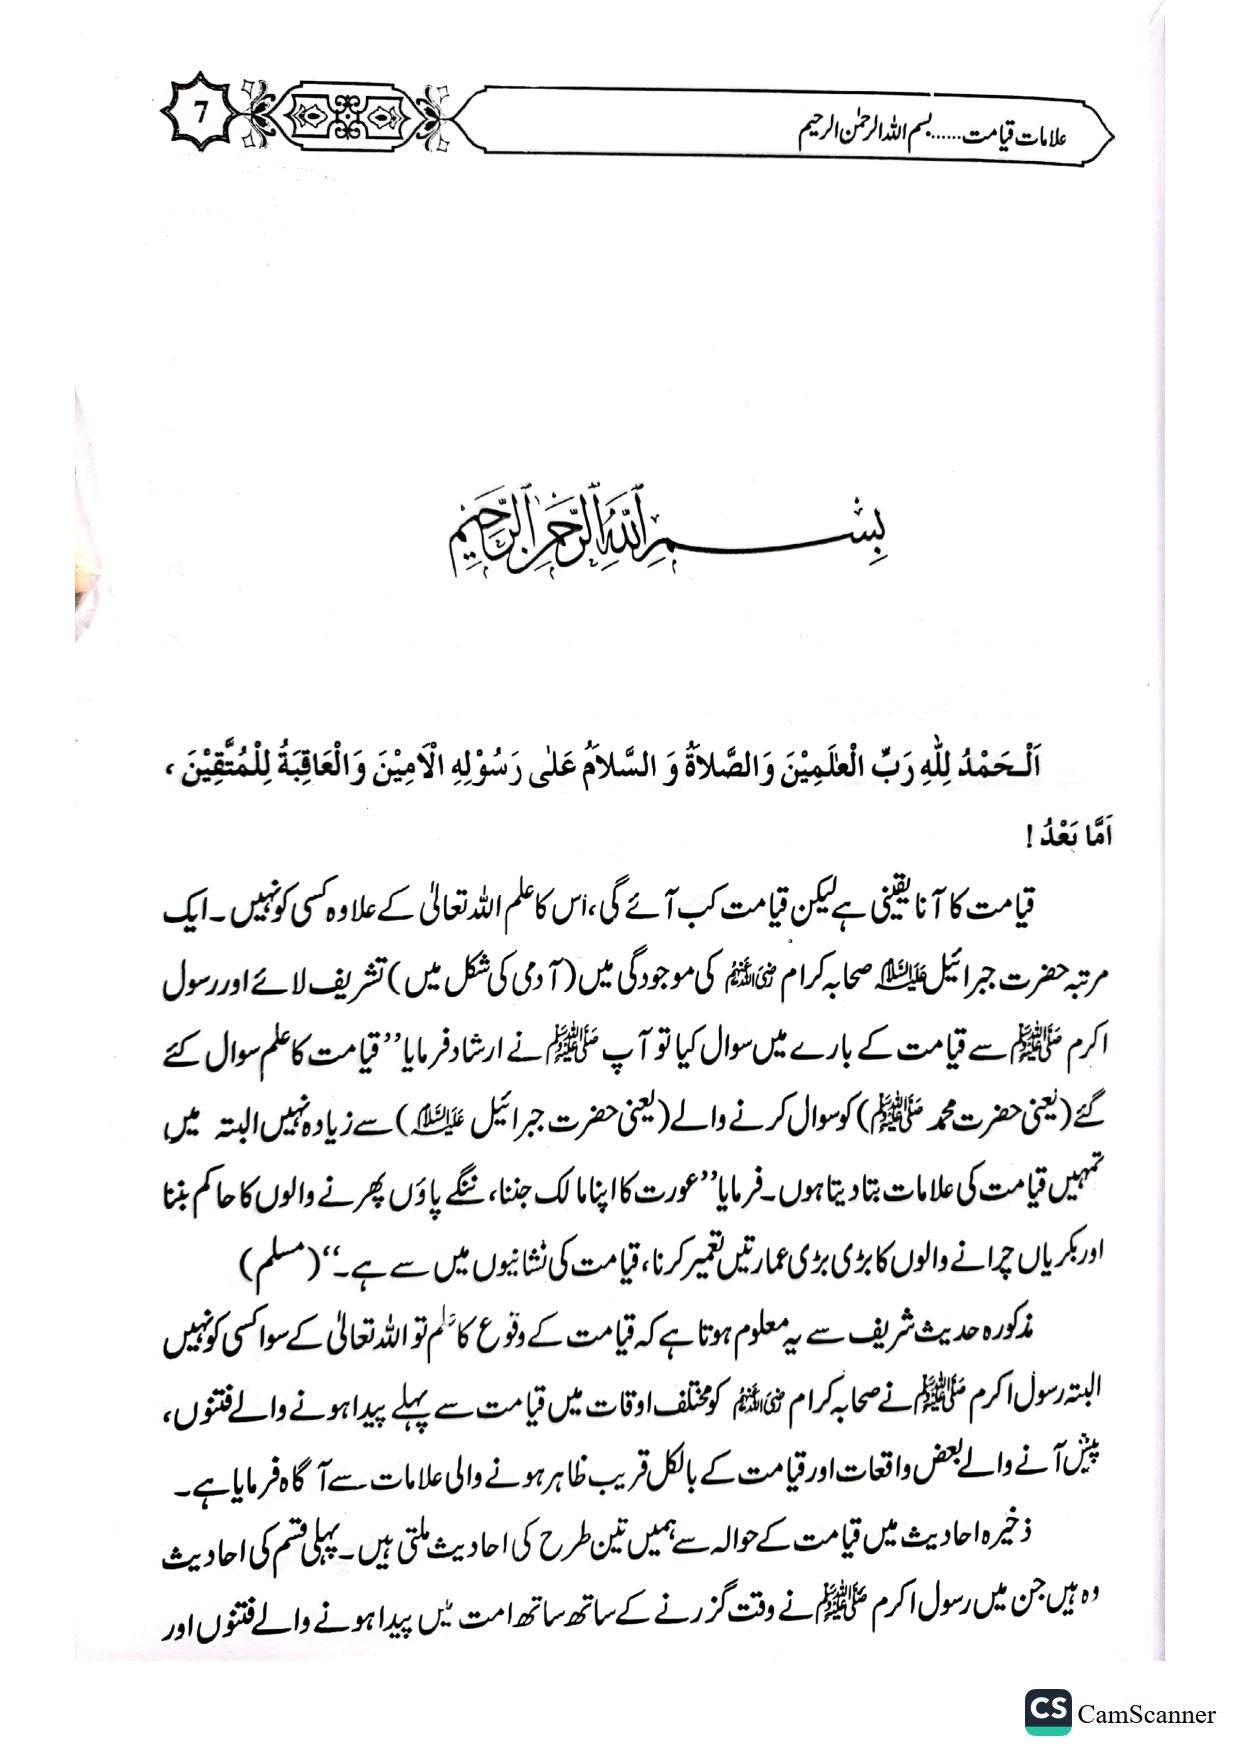 7
علامات قیامت......بسم اللہ الرحمٰن الرحیم
بِسْمِ اللّٰهِ الرَّحْمٰنِ الرَّحِيْمِ
اَلْحَمْدُ لِلّٰهِ رَبِّ الْعٰلَمِيْنَ وَالصَّلاَةُ وَ السَّلاَمُ عَلٰى رَسُوْلِهِ الْاَمِيْنَ وَالْعَاقِبَةُ لِلْمُتَّقِيْنَ ،
اَمَّا بَعْدُ !
قیامت کا آنا یقینی ہے لیکن قیامت کب آئے گی، اس کا علم اللہ تعالیٰ کے علاوہ کسی کو نہیں۔ ایک
مرتبہ حضرت جبرائیل علیہ السلام صحابہ کرام رضی اللہ عنہم کی موجودگی میں (آدمی کی شکل میں) تشریف لائے اور رسول
اکرم ﷺ سے قیامت کے بارے میں سوال کیا تو آپ ﷺ نے ارشاد فرمایا ’’قیامت کا علم سوال کئے
گئے (یعنی حضرت محمد ﷺ) کو سوال کرنے والے (یعنی حضرت جبرائیل علیہ السلام) سے زیادہ نہیں البتہ میں
تمہیں قیامت کی علامات بتا دیتا ہوں۔ فرمایا ’’عورت کا اپنا مالک جننا، ننگے پاؤں پھرنے والوں کا حاکم بننا
اور بکریاں چرانے والوں کا بڑی بڑی عمارتیں تعمیر کرنا، قیامت کی نشانیوں میں سے ہے۔‘‘ (مسلم)
مذکورہ حدیث شریف سے یہ معلوم ہوتا ہے کہ قیامت کے وقوع کا علم تو اللہ تعالیٰ کے سوا کسی کو نہیں
البتہ رسول اکرم ﷺ نے صحابہ کرام رضی اللہ عنہم کو مختلف اوقات میں قیامت سے پہلے پیدا ہونے والے فتنوں،
پیش آنے والے بعض واقعات اور قیامت کے بالکل قریب ظاہر ہونے والی علامات سے آگاہ فرمایا ہے۔
ذخیرہ احادیث میں قیامت کے حوالہ سے ہمیں تین طرح کی احادیث ملتی ہیں۔ پہلی قسم کی احادیث
وہ ہیں جن میں رسول اکرم ﷺ نے وقت گزرنے کے ساتھ ساتھ امت میں پیدا ہونے والے فتنوں اور
CS CamScanner